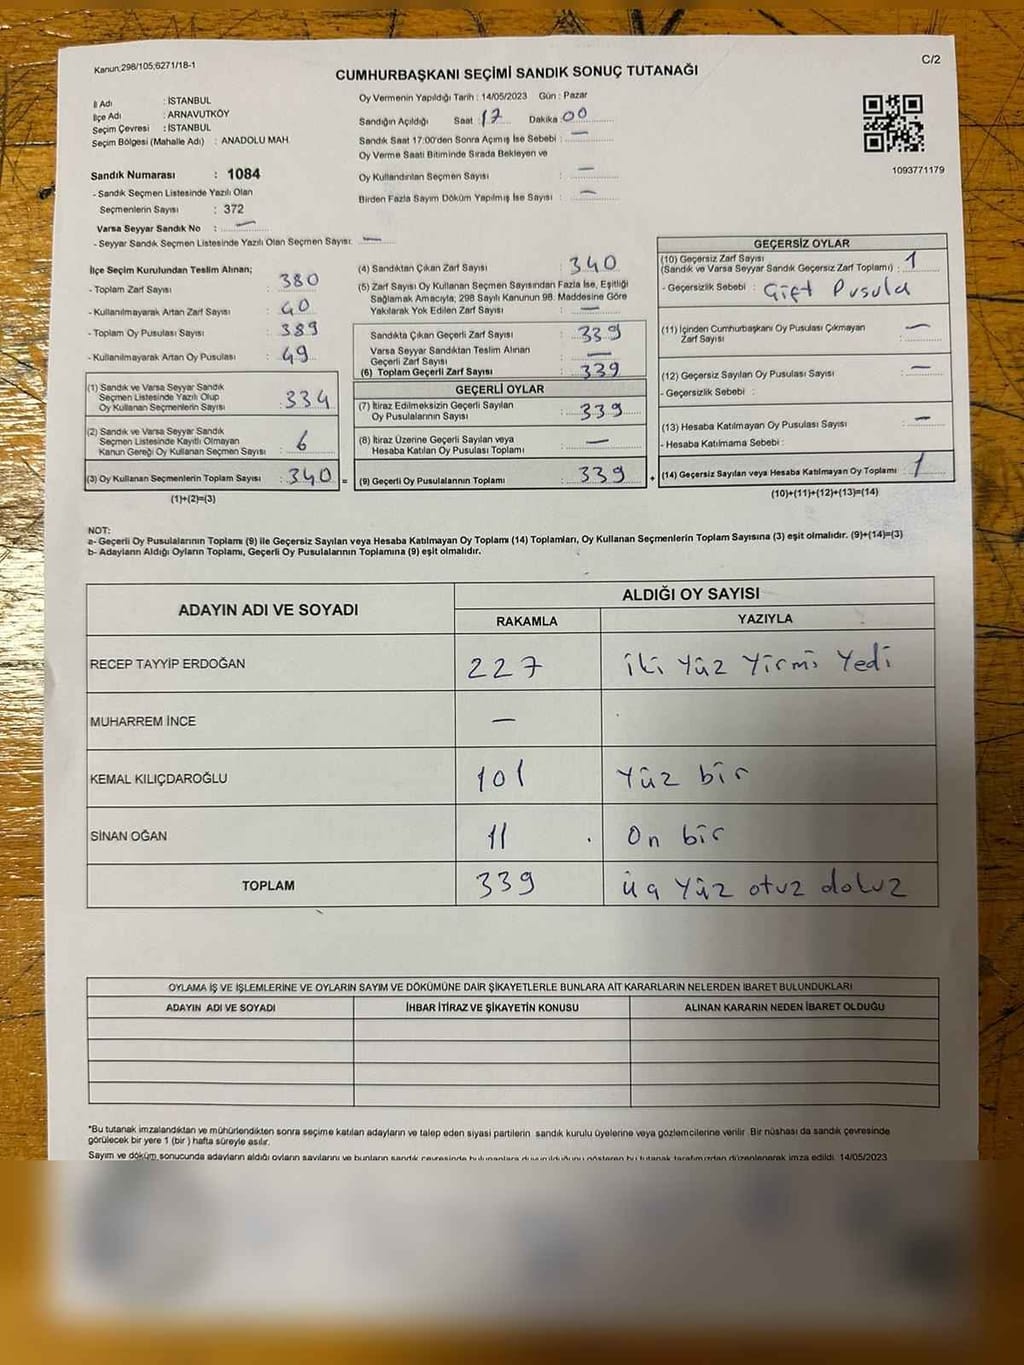 Kanun;298/105;6271/18-1
C/2
CUMHURBAŞKANI SEÇİMİ SANDIK SONUÇ TUTANAĞI
İl Adı : İSTANBUL
İlçe Adı : ARNAVUTKÖY
Seçim Çevresi : İSTANBUL
Seçim Bölgesi (Mahalle Adı) : ANADOLU MAH.
Sandık Numarası : 1084
- Sandık Seçmen Listesinde Yazılı Olan
Seçmenlerin Sayısı : 372
Varsa Seyyar Sandık No : —
- Seyyar Sandık Seçmen Listesinde Yazılı Olan Seçmen Sayısı: —
Oy Vermenin Yapıldığı Tarih : 14/05/2023 Gün : Pazar
Sandığın Açıldığı Saat : 17 Dakika : 00
Sandık Saat 17:00'den Sonra Açımış İse Sebebi : —
Oy Verme Saati Bitiminde Sırada Bekleyen ve
Oy Kullandırılan Seçmen Sayısı : —
Birden Fazla Sayım Döküm Yapılmış İse Sayısı : —
1093771179
İlçe Seçim Kurulundan Teslim Alınan;
- Toplam Zarf Sayısı : 380
- Kullanılmayarak Artan Zarf Sayısı : 40
- Toplam Oy Pusulası Sayısı : 389
- Kullanılmayarak Artan Oy Pusulası : 49
(1) Sandık ve Varsa Seyyar Sandık
Seçmen Listesinde Yazılı Olup
Oy Kullanan Seçmenlerin Sayısı : 334
(2) Sandık ve Varsa Seyyar Sandık
Seçmen Listesinde Kayıtlı Olmayan
Kanun Gereği Oy Kullanan Seçmen Sayısı : 6
(3) Oy Kullanan Seçmenlerin Toplam Sayısı : 340 =
(1)+(2)=(3)
(4) Sandıktan Çıkan Zarf Sayısı : 340
(5) Zarf Sayısı Oy Kullanan Seçmen Sayısından Fazla İse, Eşitliği
Sağlamak Amacıyla; 298 Sayılı Kanunun 98. Maddesine Göre
Yakılarak Yok Edilen Zarf Sayısı : —
Sandıkta Çıkan Geçerli Zarf Sayısı : 339
Varsa Seyyar Sandıktan Teslim Alınan
Geçerli Zarf Sayısı : —
(6) Toplam Geçerli Zarf Sayısı : 339
GEÇERLİ OYLAR
(7) İtiraz Edilmeksizin Geçerli Sayılan
Oy Pusulalarının Sayısı : 339
(8) İtiraz Üzerine Geçerli Sayılan veya
Hesaba Katılan Oy Pusulası Toplamı : —
(9) Geçerli Oy Pusulalarının Toplamı : 339 +
GEÇERSİZ OYLAR
(10) Geçersiz Zarf Sayısı
(Sandık ve Varsa Seyyar Sandık Geçersiz Zarf Toplamı) : 1
- Geçersizlik Sebebi : Çift Pusula
(11) İçinden Cumhurbaşkanı Oy Pusulası Çıkmayan
Zarf Sayısı : —
(12) Geçersiz Sayılan Oy Pusulası Sayısı : —
- Geçersizlik Sebebi :
(13) Hesaba Katılmayan Oy Pusulası Sayısı : —
- Hesaba Katılmama Sebebi :
(14) Geçersiz Sayılan veya Hesaba Katılmayan Oy Toplamı : 1
(10)+(11)+(12)+(13)=(14)
NOT:
a- Geçerli Oy Pusulalarının Toplamı (9) ile Geçersiz Sayılan veya Hesaba Katılmayan Oy Toplamı (14) Toplamları, Oy Kullanan Seçmenlerin Toplam Sayısına (3) eşit olmalıdır. (9)+(14)=(3)
b- Adayların Aldığı Oyların Toplamı, Geçerli Oy Pusulalarının Toplamına (9) eşit olmalıdır.
ADAYIN ADI VE SOYADI
ALDIĞI OY SAYISI
RAKAMLA YAZIYLA
RECEP TAYYİP ERDOĞAN 227 iki Yüz Yirmi Yedi
MUHARREM İNCE —
KEMAL KILIÇDAROĞLU 101 Yüz bir
SİNAN OĞAN 11 On bir
TOPLAM 339 üç Yüz otuz dokuz
OYLAMA İŞ VE İŞLEMLERİNE VE OYLARIN SAYIM VE DÖKÜMÜNE DAİR ŞİKAYETLERLE BUNLARA AİT KARARLARIN NELERDEN İBARET BULUNDUKLARI
ADAYIN ADI VE SOYADI İHBAR İTİRAZ VE ŞİKAYETİN KONUSU ALINAN KARARIN NEDEN İBARET OLDUĞU
*Bu tutanak imzalandıktan ve mühürlendikten sonra seçime katılan adayların ve talep eden siyasi partilerin sandık kurulu üyelerine veya gözlemcilerine verilir. Bir nüshası da sandık çevresinde
görülecek bir yere 1 (bir) hafta süreyle asılır.
Sayım ve döküm sonucunda adayların aldığı oyların sayılarını ve bunların sandık çevresinde bulunanlara duyurulduğunu gösteren bu tutanak tarafımızdan düzenlenerek imza edildi. 14/05/2023